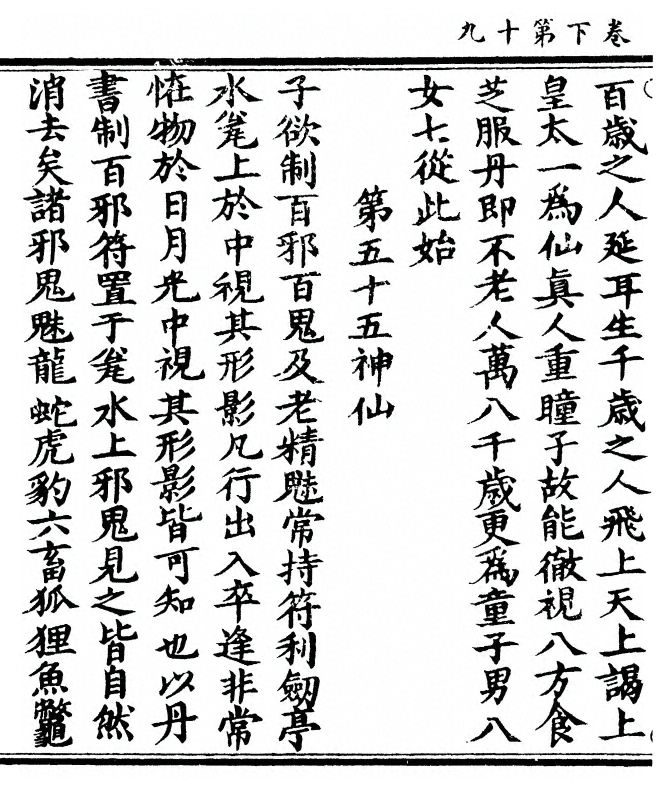 卷下第十九
百歲之人延耳生千歲之人飛上天上謁上
皇太一爲仙眞人重瞳子故能徹視八方食
芝服丹即不老人萬八千歲更爲童子男八
女七從此始
第五十五神仙
子欲制百邪百鬼及老精魅常持符利劔亭
水瓮上於中視其形影凡行出入卒逢非常
恠物於日月光中視其形影皆可知也以丹
書制百邪符置于瓮水上邪鬼見之皆自然
消去矣諸邪鬼魅龍蛇虎豹六畜狐狸魚鼈